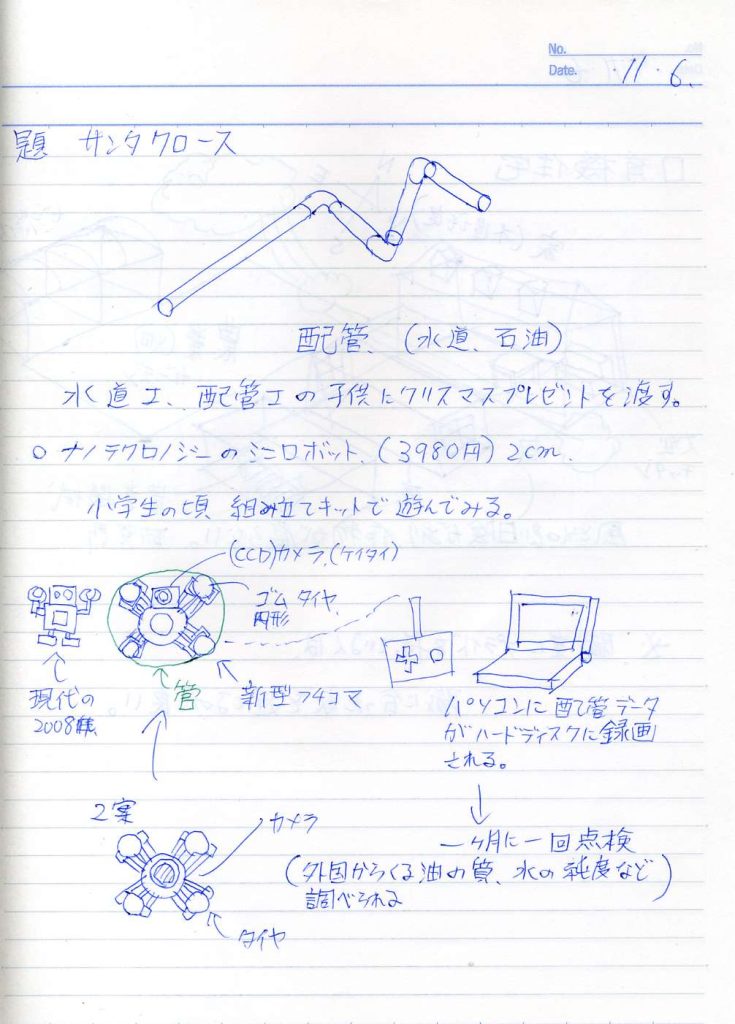 No.
Date. ・11・6.
題 サンタクロース
配管、(水道、石油)
水道工、配管工の子供にクリスマスプレゼントを渡す。
○ ナノテクロノジーのミニロボット、(3980円) 2cm.
小学生の頃 組み立てキットで遊んでみる。
(CCD)カメラ、(ケイタイ)
ゴムタイヤ、
円形
現代の
2008
管
新型フチコマ
パソコンに配管データ
がハードディスクに録画
される。
2案
カメラ
タイヤ
一ヶ月に一回点検
(外国からくる油の質、水の純度など)
調べられる